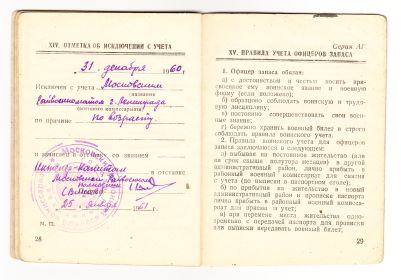 XIV. ОТМЕТКА ОБ ИСКЛЮЧЕНИИ С УЧЕТА
31 декабря 1960 г.
Исключен с учета Московским
(название
районного комиссариата)
Райвоенкоматом г. Ленинграда
по причине по возрасту.
и записан в отставку со званием
Инженер-Капитан
в отставке
Московский Райвоенком
полковник
25 января 1961 г.
М. П.
28
Серия АГ
XV. ПРАВИЛА УЧЕТА ОФИЦЕРОВ ЗАПАСА
1. Офицер запаса обязан:
а) с достоинством и честью носить присвоенное ему воинское звание и военную форму (если положено);
б) образцово соблюдать воинскую и трудовую дисциплину;
в) постоянно совершенствовать свои военные знания;
г) бережно хранить военный билет и строго соблюдать правила воинского учета.
2. Правила воинского учета для офицеров запаса заключаются в следующем:
а) выбывая на постоянное жительство (или на срок свыше полутора месяцев) в другой административный район, лично явиться в районный военный комиссариат для снятия с учета (до выписки в паспортном столе);
б) по прибытии на жительство в новый административный район и прописке паспорта лично явиться в районный военный комиссариат для приема на учет;
в) при перемене места жительства одновременно с передачей паспорта для прописки или выписки передавать военный билет;
29